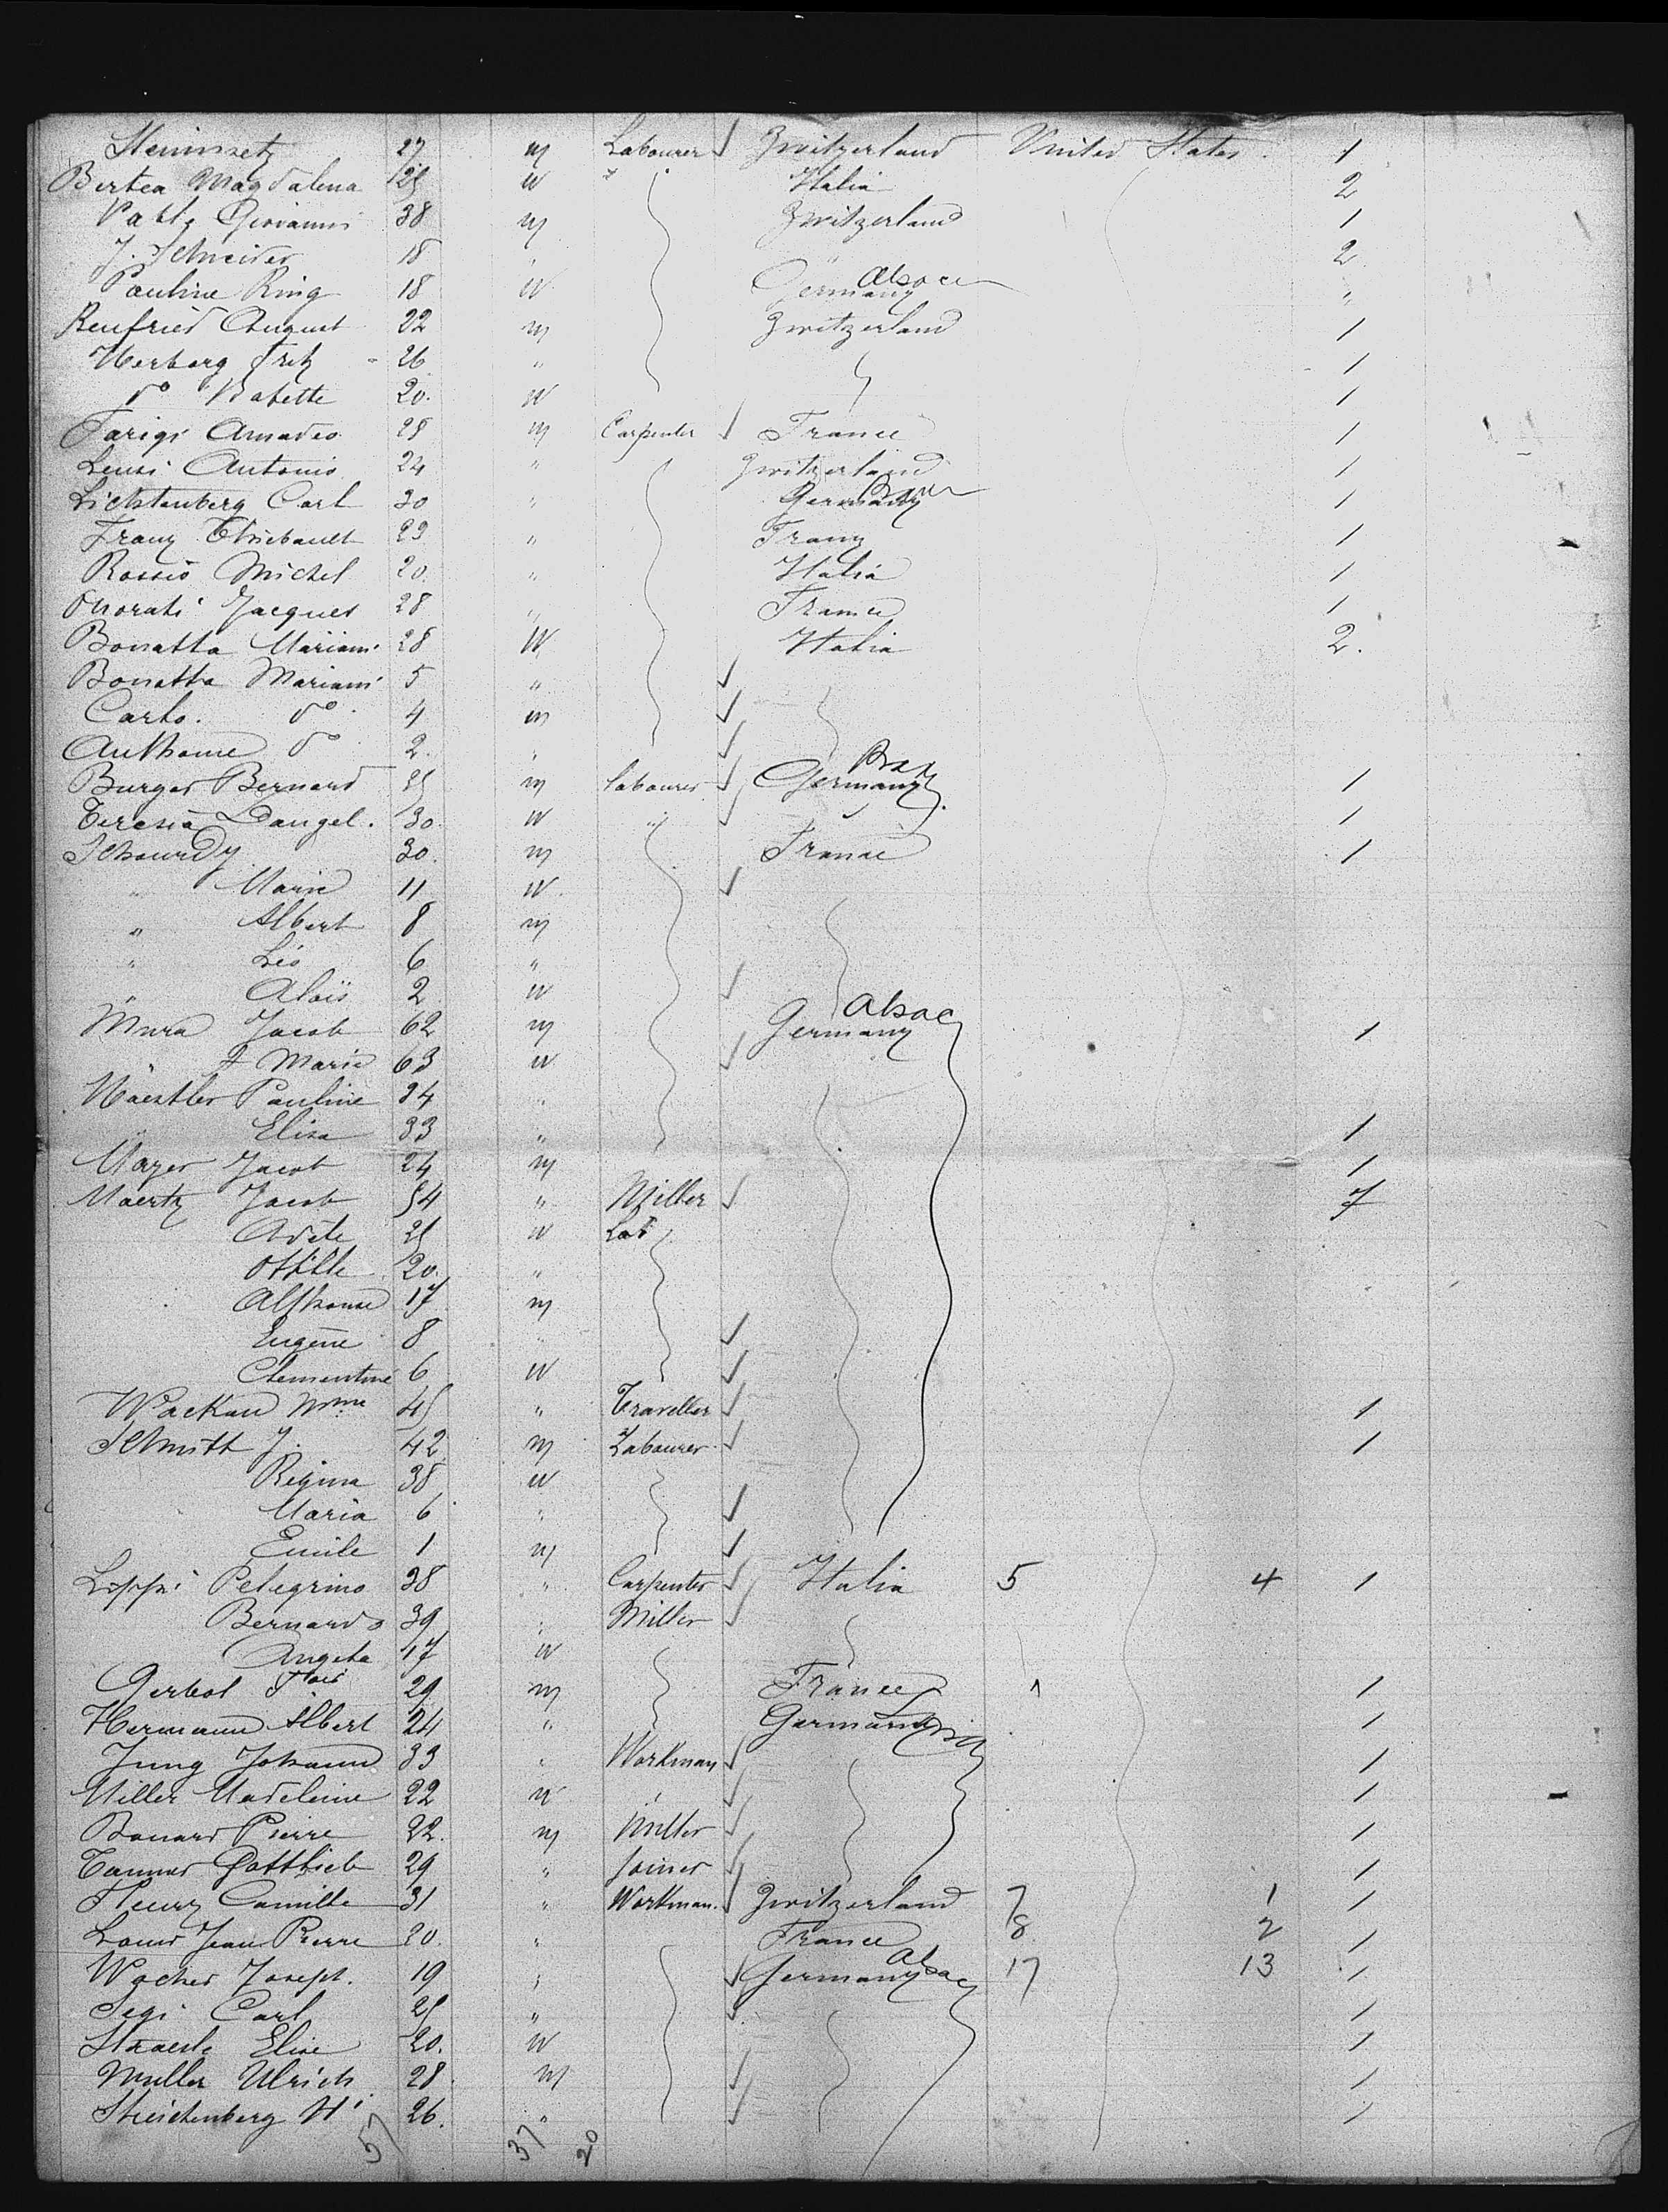 27 m Labourer Zwitzerland United States 1
Bertea Magdalena 25 w Italia 2
Giovanni 38 m Zwitzerland 1
J. Schneider 18 " " 2
Pauline Ring 18 w Germany Alsace "
Renfried August 22 m Zwitzerland 1
Herberg Fritz 26 " 1
do Babette 20. w 1
Farigi Amadeo 28 m Carpenter France 1
Antonio 24 " Zwitzerland 1
Lichtenberg Carl 30 " Germany 1
Franz Thiebault 23 " Franz 1
Rossio Michel 20. " Italia 1
Onorati Jacques 28 " France 1
Bonatta Mariani 28 W Italia 2.
Bonatta Mariani 5 "
Carlo. do 4 m
Anthome do 2. "
Burger Bernard 25 m labourer Germany 1
Teresia Dangel. 30. w " 1
Schourdy 30. m France 1
" Marie 11 w
" Albert 8 m
" Leo 6 "
" Alois 2 w
Mura Jacob 62 m Germany Alsac 1
" Marie 63 w
Pauline 34 "
" Elisa 33 " 1
Mayer Jacob 24 m 1
Maertz Jacob 54 " Miller 7
25 w Lab
Ottilie 20. "
Alphonse 17 m
Eugene 8 "
Clementine 6 w
Wackau Mme 45 " Traveller 1
Schmitt J. 42 m Labourer 1
Regina 38 w
Maria 6 "
Emile 1 m
Lippi Pelegrino 38 " Carpenter Italia 5 4 1
Bernardo 39 " Miller
Angela 17 w
Gerbol 29 m France 1 1
Hermann Albert 24 " Germany 1
Jung Johann 33 " Workman 1
Miller Madeleine 22 w 1
Bonard Pierre 22. m Miller 1
Tanner Gottlieb 29 " Joiner 1
Fleury Camille 31 " Workman. Zwitzerland 7 1 1
Louis Jean Pierre 20. " France 8 2 1
Wocher Joseph. 19 " Germany Alsac 17 13 1
Segi Carl 25 " 1
Elise 20. w 1
Muller Ulrich 28 m 1
26. " 1
57 37 20